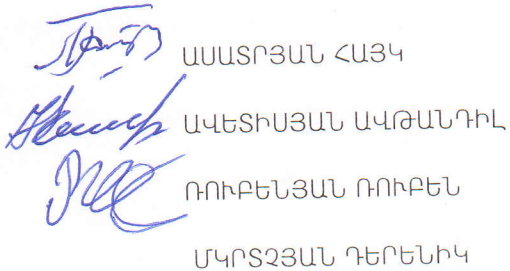 ԱՍԱՏՐՅԱՆ ՀԱՅԿ
ԱՎԵՏԻՍՅԱՆ ԱՎԹԱՆԴԻԼ
ՌՈՒԲԵՆՅԱՆ ՌՈՒԲԵՆ
ՄԿՐՏՉՅԱՆ ԴԵՐԵՆԻԿ